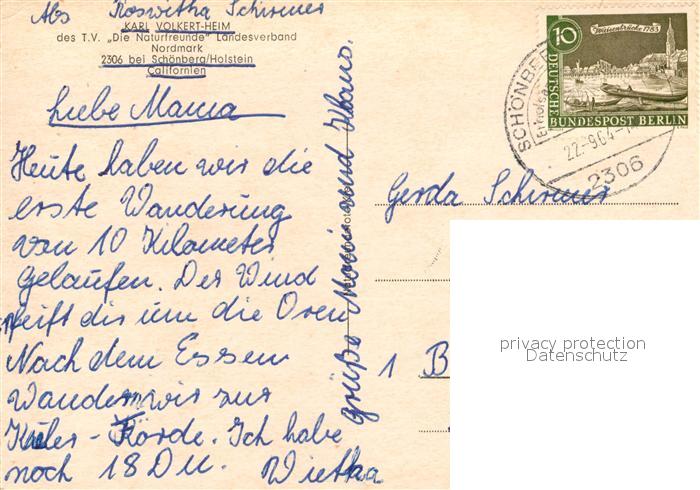 Abs Roswitha Schirmer
KARL VOLKERT-HEIM
des T.V. „Die Naturfreunde" Landesverband
Nordmark
2306 bei Schönberg/Holstein
Californien
Liebe Mama
Heute haben wir die
erste Wanderung
von 10 Kilometer
gelaufen. Der Wind
pfeift dir um die Oren
Nach dem Essen
Wandern wir zur
Kieler-Förde. Ich habe
noch 18 DM.
grüße Moni und Klaus.
10
Weisenbrücke 1783
DEUTSCHE
BUNDESPOST BERLIN
SCHÖNBE
22.-9.64-
2306
Gerda Schirmer
1 B
privacy protection
Datenschutz